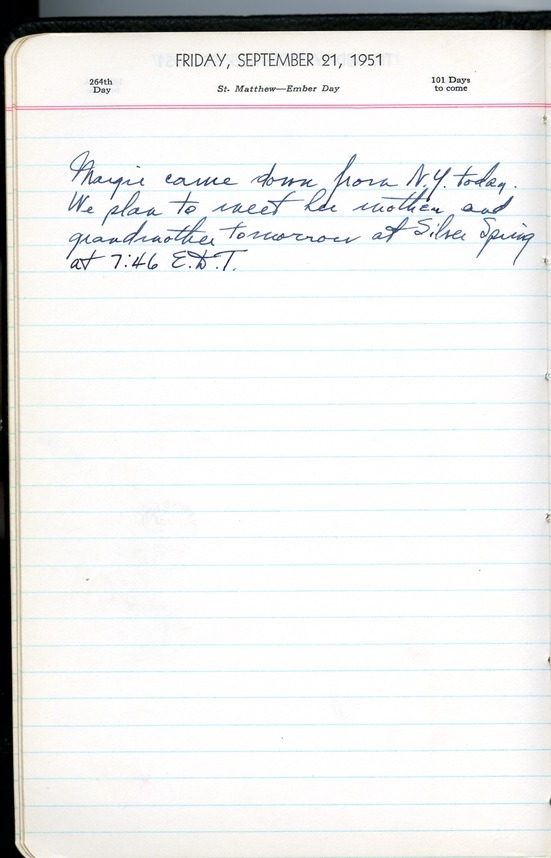 FRIDAY, SEPTEMBER 21, 1951
264th Day
St. Matthew—Ember Day
101 Days to come
Margie came down from N.Y. today.
We plan to meet her mother and
grandmother tomorrow at Silver Spring
at 7:46 E.D.T.